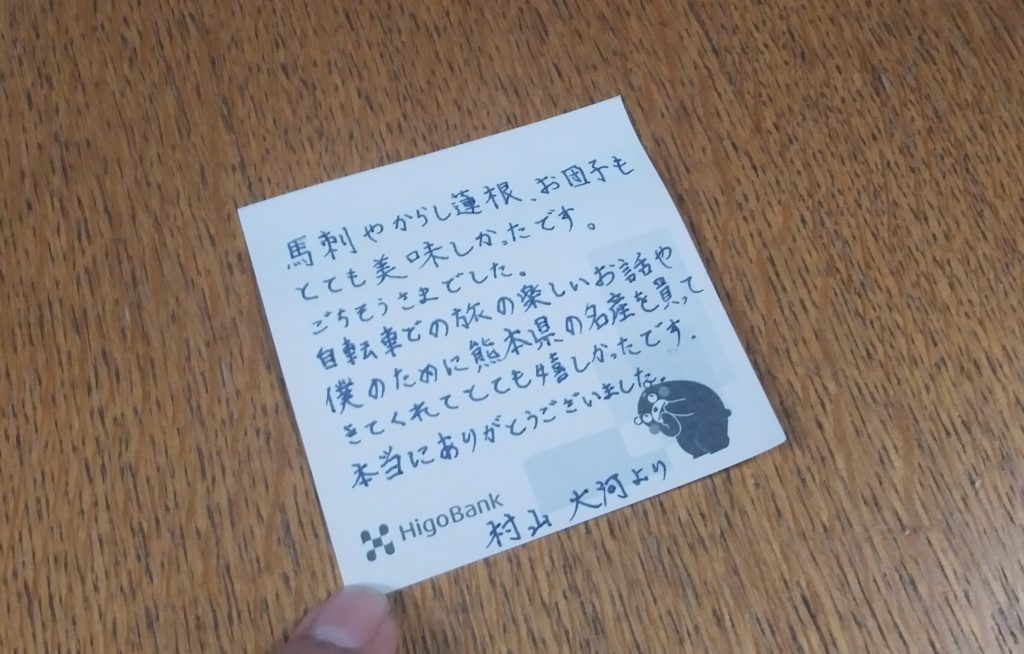 馬刺やからし蓮根、お団子も
とても美味しかったです。
ごちそうさまでした。
自転車での旅の楽しいお話や
僕のために熊本県の名産を買って
きてくれてとても嬉しかったです。
本当にありがとうございました。
HigoBank
村山 大河より